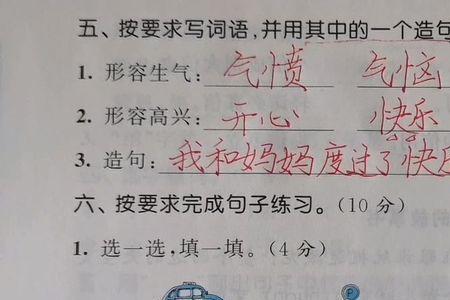 五、按要求写词语,并用其中的一个造句
1. 形容生气: 气愤 气恼
2. 形容高兴: 开心 快乐
3. 造句: 我和妈妈度过了快
六、按要求完成句子练习。(10分)
1. 选一选,填一填。(4分)